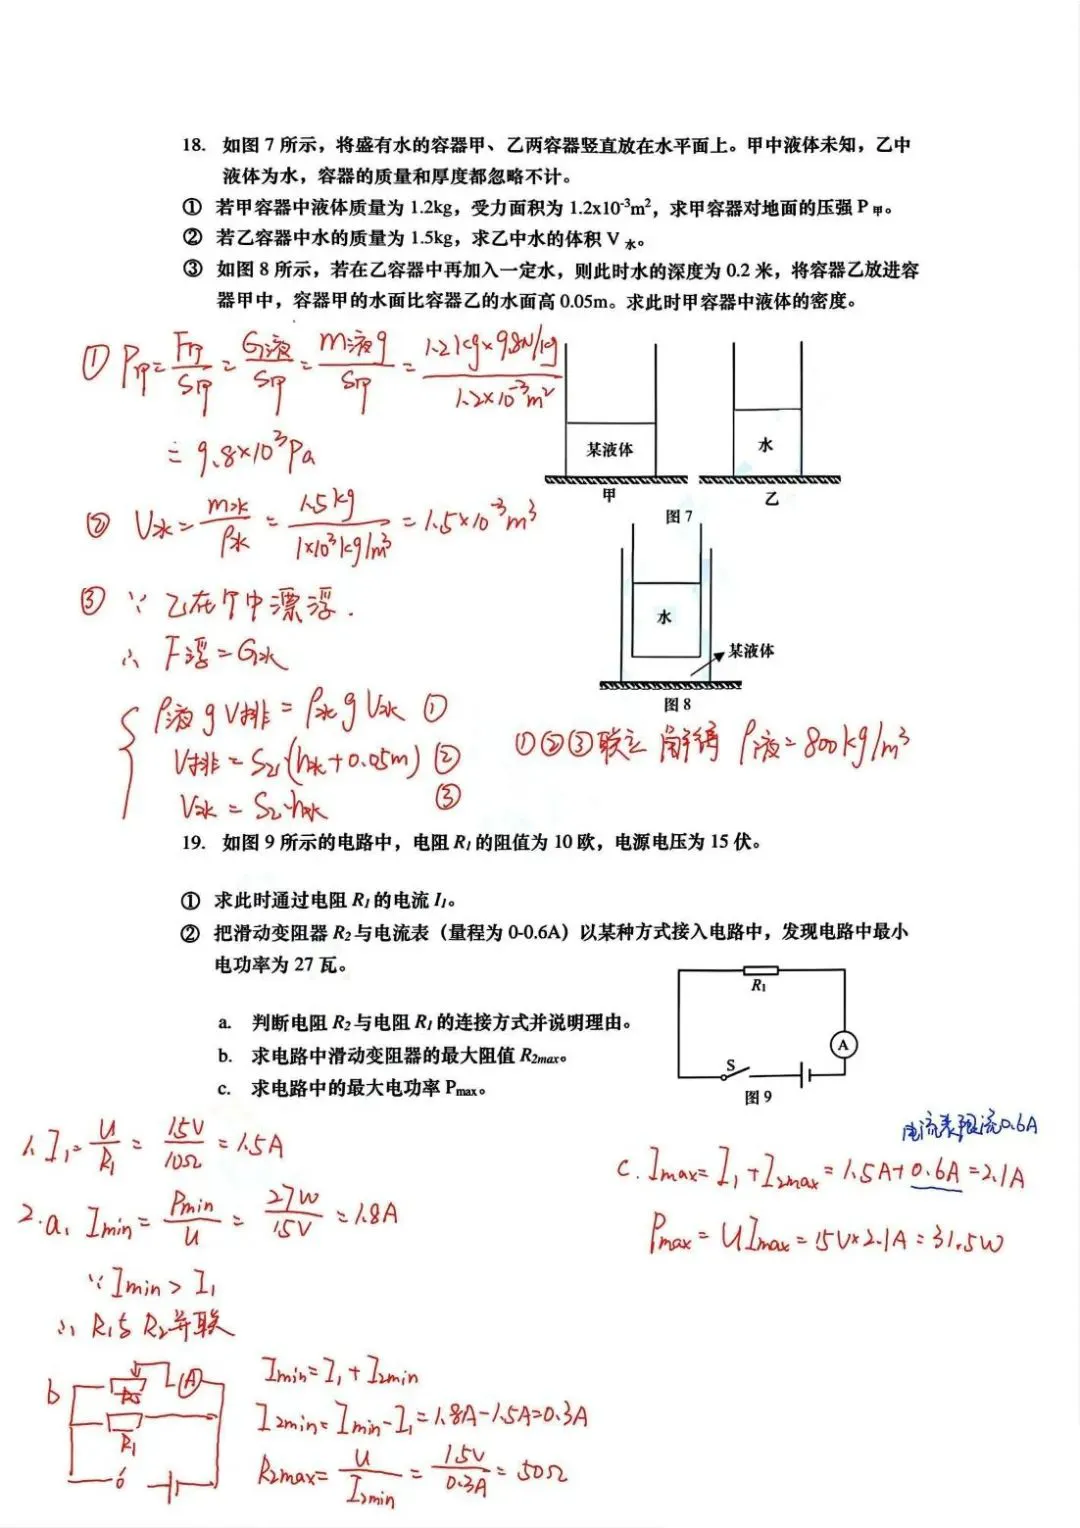 18. 如图 7 所示，将盛有水的容器甲、乙两容器竖直放在水平面上。甲中液体未知，乙中
液体为水，容器的质量和厚度都忽略不计。
① 若甲容器中液体质量为 1.2kg，受力面积为 1.2x10⁻³m²，求甲容器对地面的压强 P甲。
② 若乙容器中水的质量为 1.5kg，求乙中水的体积 V水。
③ 如图 8 所示，若在乙容器中再加入一定水，则此时水的深度为 0.2 米，将容器乙放进容
器甲中，容器甲的水面比容器乙的水面高 0.05m。求此时甲容器中液体的密度。
① P甲=F甲/S甲=G液/S甲=m液g/S甲=1.2kg×9.8N/kg/1.2×10⁻³m²
=9.8×10³Pa
某液体
水
甲
乙
图 7
② V水=m水/ρ水=1.5kg/1×10³kg/m³=1.5×10⁻³m³
③ ∵ 乙在甲中漂浮.
∴ F浮=G水
水
某液体
图 8
ρ液gV排=ρ水gV水 ①
V排=S乙(h水+0.05m) ②
V水=S乙·h水 ③
①②③联立 解得 ρ液=800kg/m³
19. 如图 9 所示的电路中，电阻 R₁ 的阻值为 10 欧，电源电压为 15 伏。
① 求此时通过电阻 R₁ 的电流 I₁。
② 把滑动变阻器 R₂ 与电流表（量程为 0-0.6A）以某种方式接入电路中，发现电路中最小
电功率为 27 瓦。
a. 判断电阻 R₂ 与电阻 R₁ 的连接方式并说明理由。
b. 求电路中滑动变阻器的最大阻值 R₂max。
c. 求电路中的最大电功率 Pmax。
R₁
A
S
图 9
1. I₁=U/R₁=15V/10Ω=1.5A
2.a. Imin=Pmin/U=27W/15V=1.8A
∵Imin>I₁
∴ R₁与R₂并联
b
A
R₂
R₁
Imin=I₁+I₂min
I₂min=Imin-I₁=1.8A-1.5A=0.3A
R₂max=U/I₂min=15V/0.3A=50Ω
电流表限流0.6A
c. Imax=I₁+I₂max=1.5A+0.6A=2.1A
Pmax=UImax=15V×2.1A=31.5W